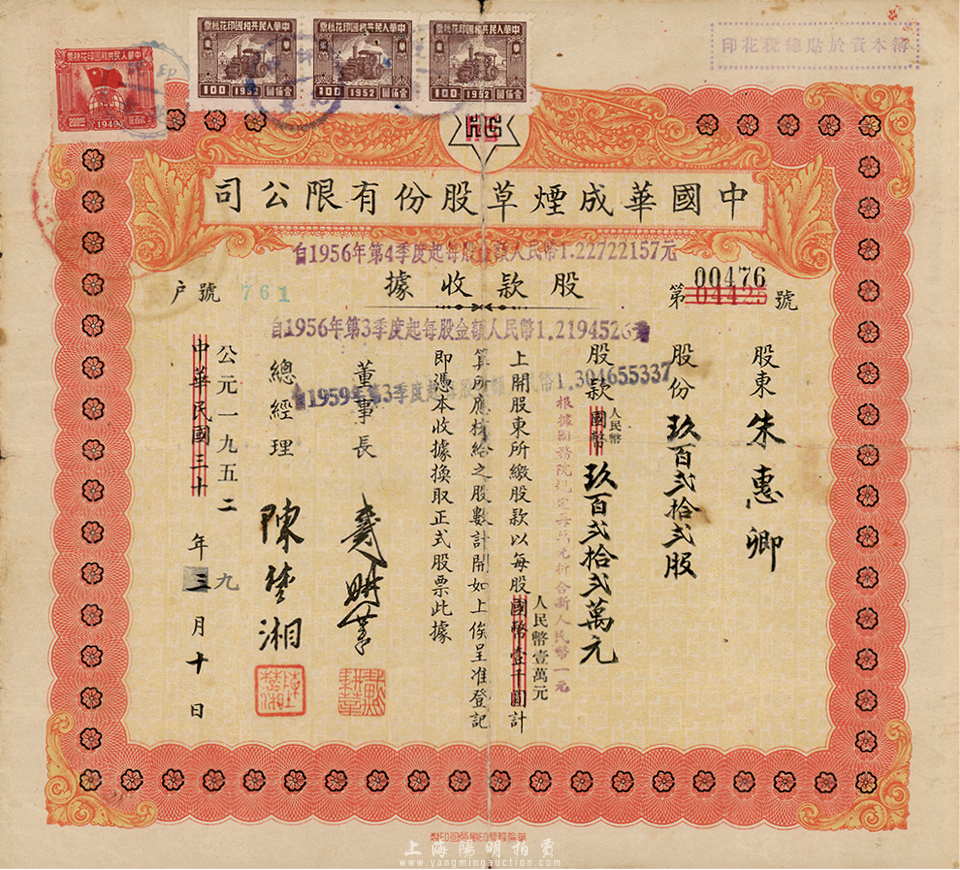 簿本資於貼總稅花印
票稅花印國和共民人華中
票稅花印國和共民人華中
票稅花印國和共民人華中
票稅花印國和共民人華中
1949
100 1952 圓佰壹
100 1952 圓佰壹
100 1952 圓佰壹
司公限有份股草煙成華國中
自1956年第4季度起每股金額人民幣1.22722157元
據收款股
00476
第04425號
戶號 761
自1956年第3季度起每股金額人民幣1.2194526元
自1959年第3季度起每股金額人民幣1.304655337
股東朱惠卿
股份玖百貳拾貳股
股款國幣人民幣玖百貳拾貳萬元
根據國務院規定每萬元折合新人民幣一元
上開股東所繳股款以每股國幣壹千圓人民幣壹萬元計
算所應核給之股數計開如上俟呈准登記
即憑本收據換取正式股票此據
董事長
總經理 陳楚湘
公元一九五二年九月十日
中華民國三十
戴耕莘
陳楚湘
上海陽明拍賣
www.yangmingauction.com